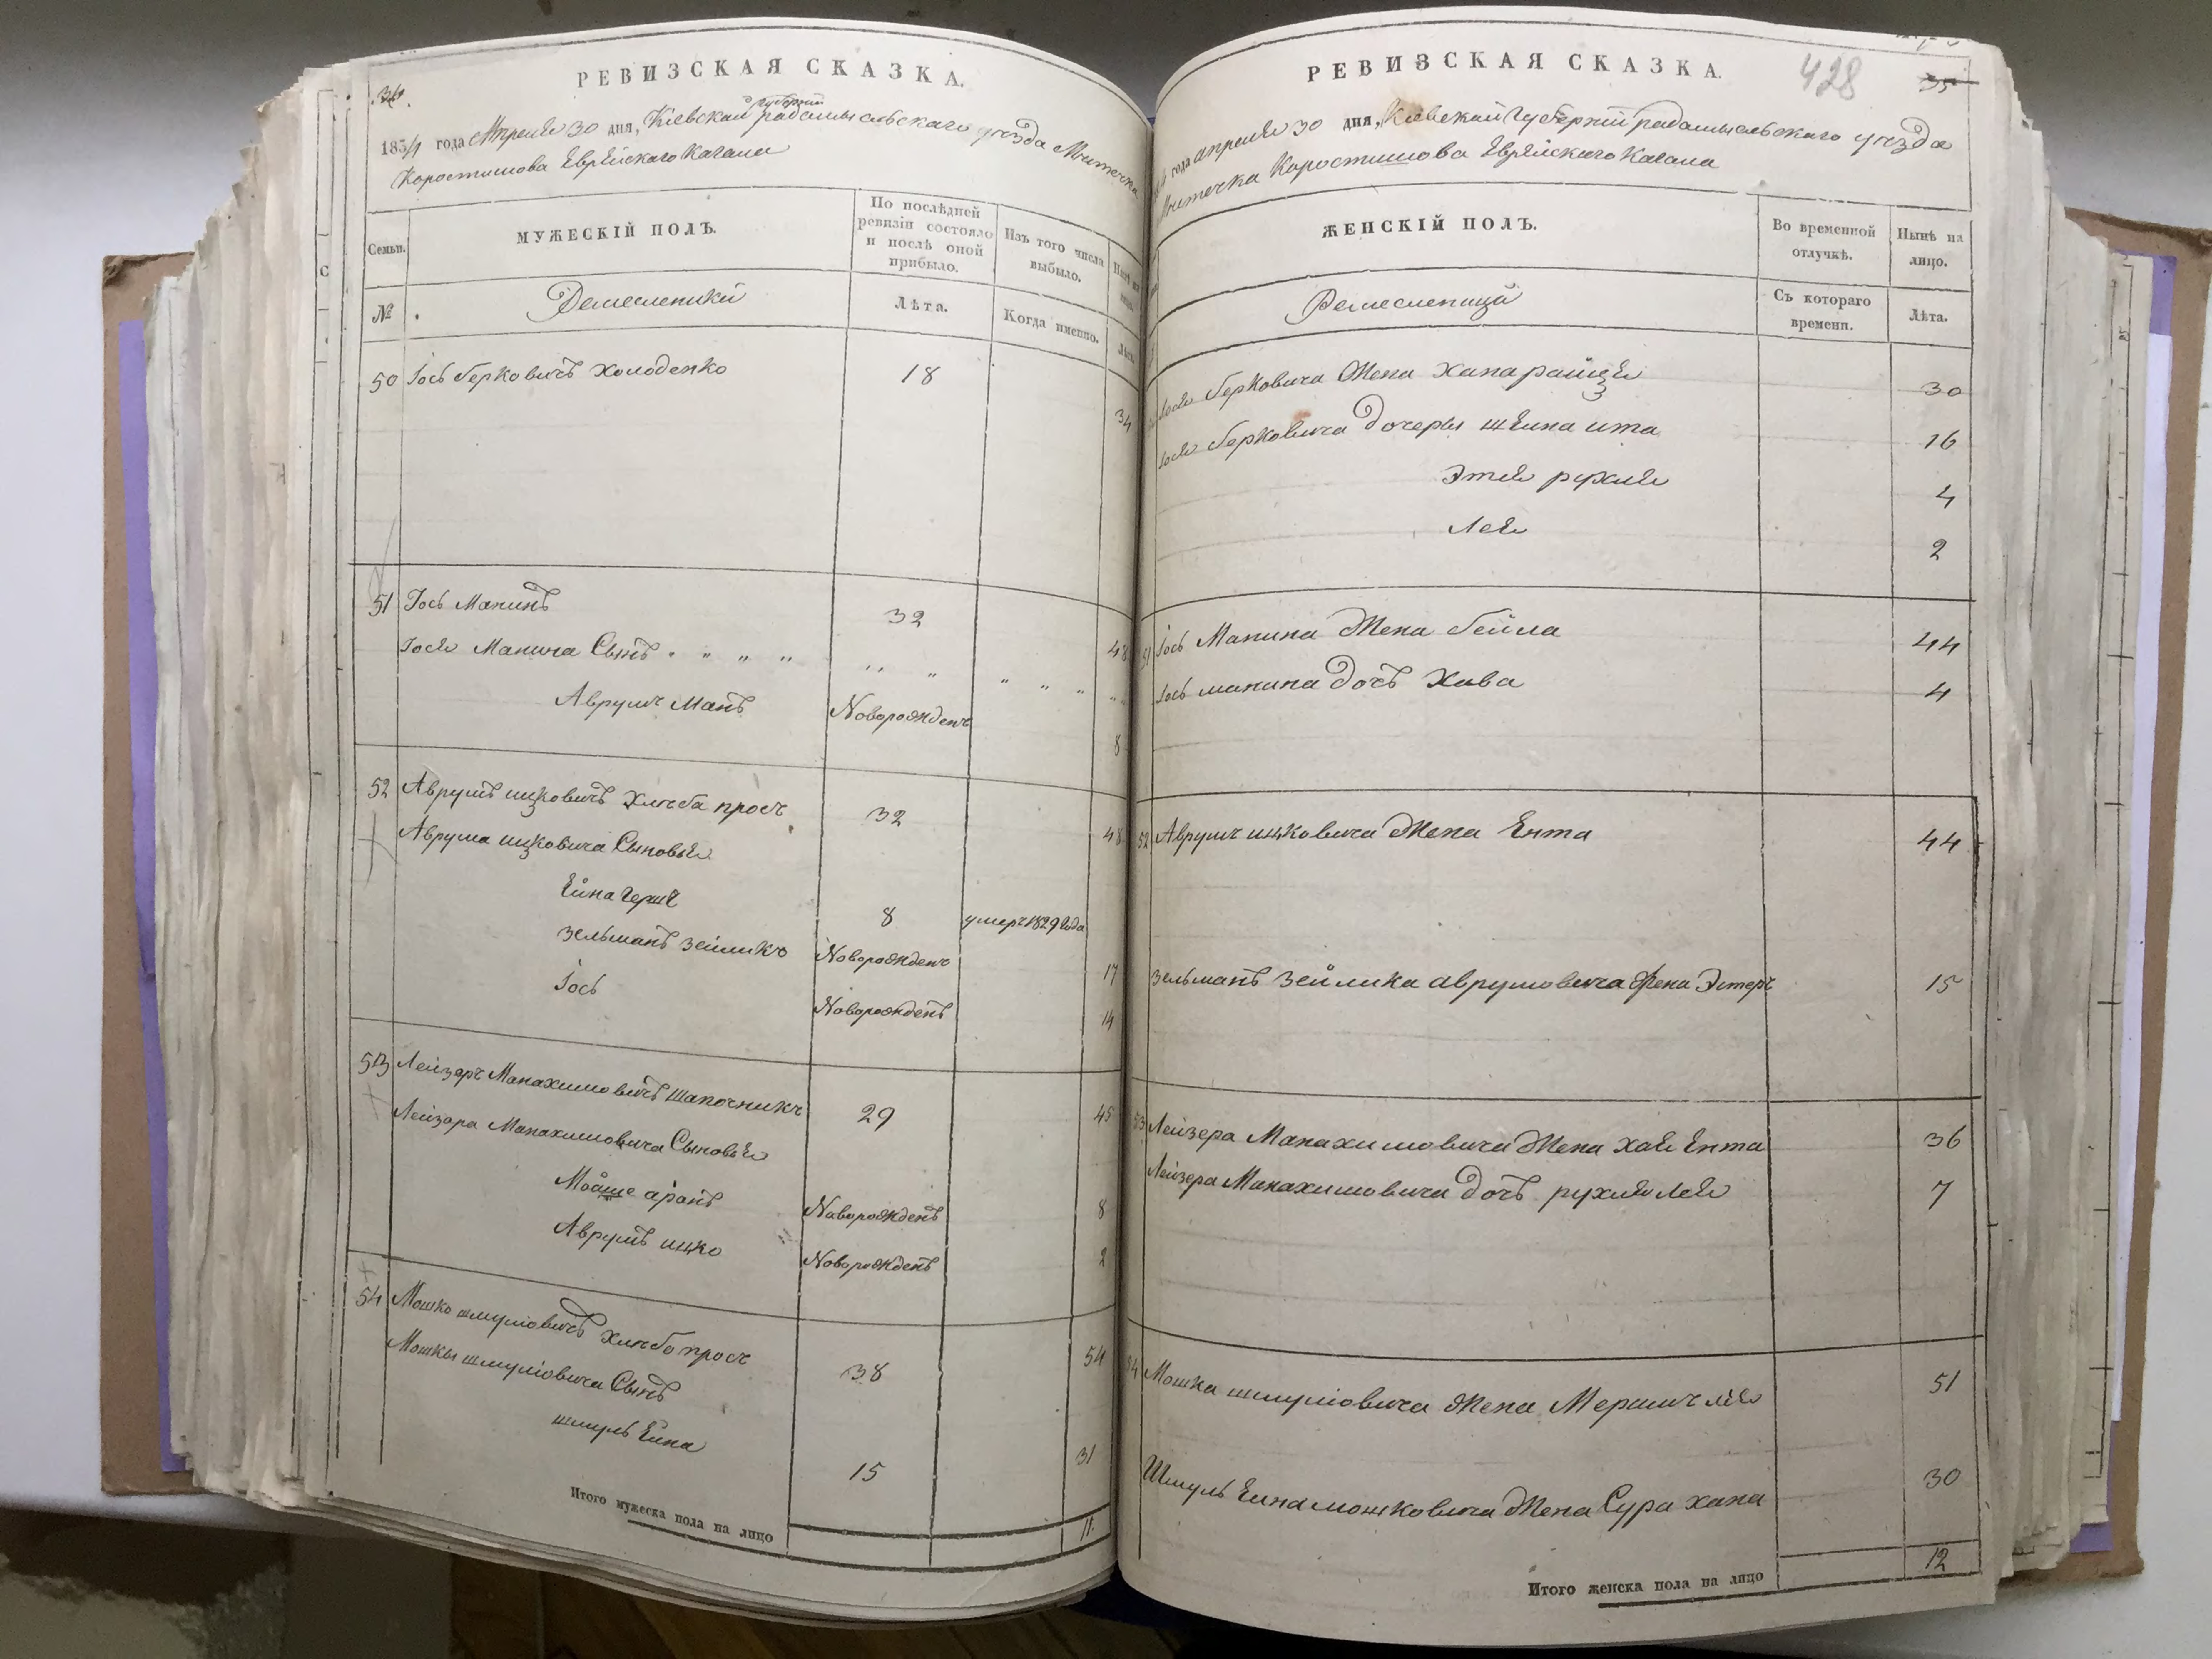 РЕВИЗСКАЯ СКАЗКА.
34.
1834 года Апреля 30 дня, Кіевской губерніи радомысльскаго уезда Мистечка
Коростишова Еврейскаго Кагала
Семьи. МУЖЕСКІЙ ПОЛЪ. По послѣдней ревизіи состояло и послѣ оной прибыло. Изъ того числа выбыло.
№ Ремесленики Лѣта. Когда именно. Лѣта.
50 Іось берковичъ холоденко 18 34
51 Іось Манинъ 32 48
Іося Манина Сынъ
Аврумъ Манъ Новорожденъ 8
52 Аврумъ ицковичъ хлѣба просъ 32 48
Аврума ицковича Сыновья
Ейна Герш 8 умеръ 1829 года
Зельманъ Зейликъ Новорожденъ 17
Іось Новорожденъ 14
53 Лейзеръ Манахимовичъ шапочникъ 29 45
Лейзора Манахимовича Сыновья
Мойше аронъ Новорожденъ 8
Аврумъ ицко Новорожденъ 2
54 Мошко шмуліовичъ хлѣбопросъ 38 54
Мошки шмуліовича Сынъ
шмуль Ейна 15 31
Итого мужеска пола на лицо 11.
РЕВИЗСКАЯ СКАЗКА.
428 35
года апреля 30 дня, Кіевской Губерніи радомысльскаго уезда
Мистечка Коростишова Еврейскаго Кагала
ЖЕНСКІЙ ПОЛЪ. Во временной отлучкѣ. Нынѣ на лицо.
Ремесленици Съ котораго времени. Лѣта.
Іося берковича Жена ханарайзя 30
Іося берковича дочеры шейна ита 16
Этля рухля 4
Лея 2
51 Іось Манина Жена бейла 44
Іось манина дочъ Хава 4
52 Аврумъ ицковича Жена Ента 44
Зельманъ Зейлика аврумовича Жена Эстеръ 15
53 Лейзера Манахимовича Жена хая Ента 36
Лейзера Манахимовича дочъ рухля Лея 7
54 Мошка шмуліовича Жена Меримъ лея 51
Шмуль Ейна мошковича Жена Сура хана 30
Итого женска пола на лицо 12